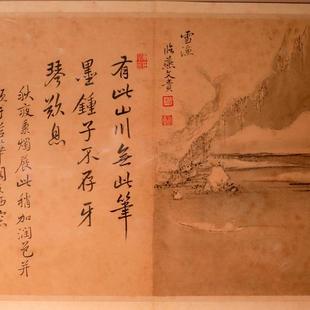 雪漁
臨燕文貴
有此山川無此筆
墨鍾子不存牙
琴歎息
秋夜秉燭展此稍加潤色并